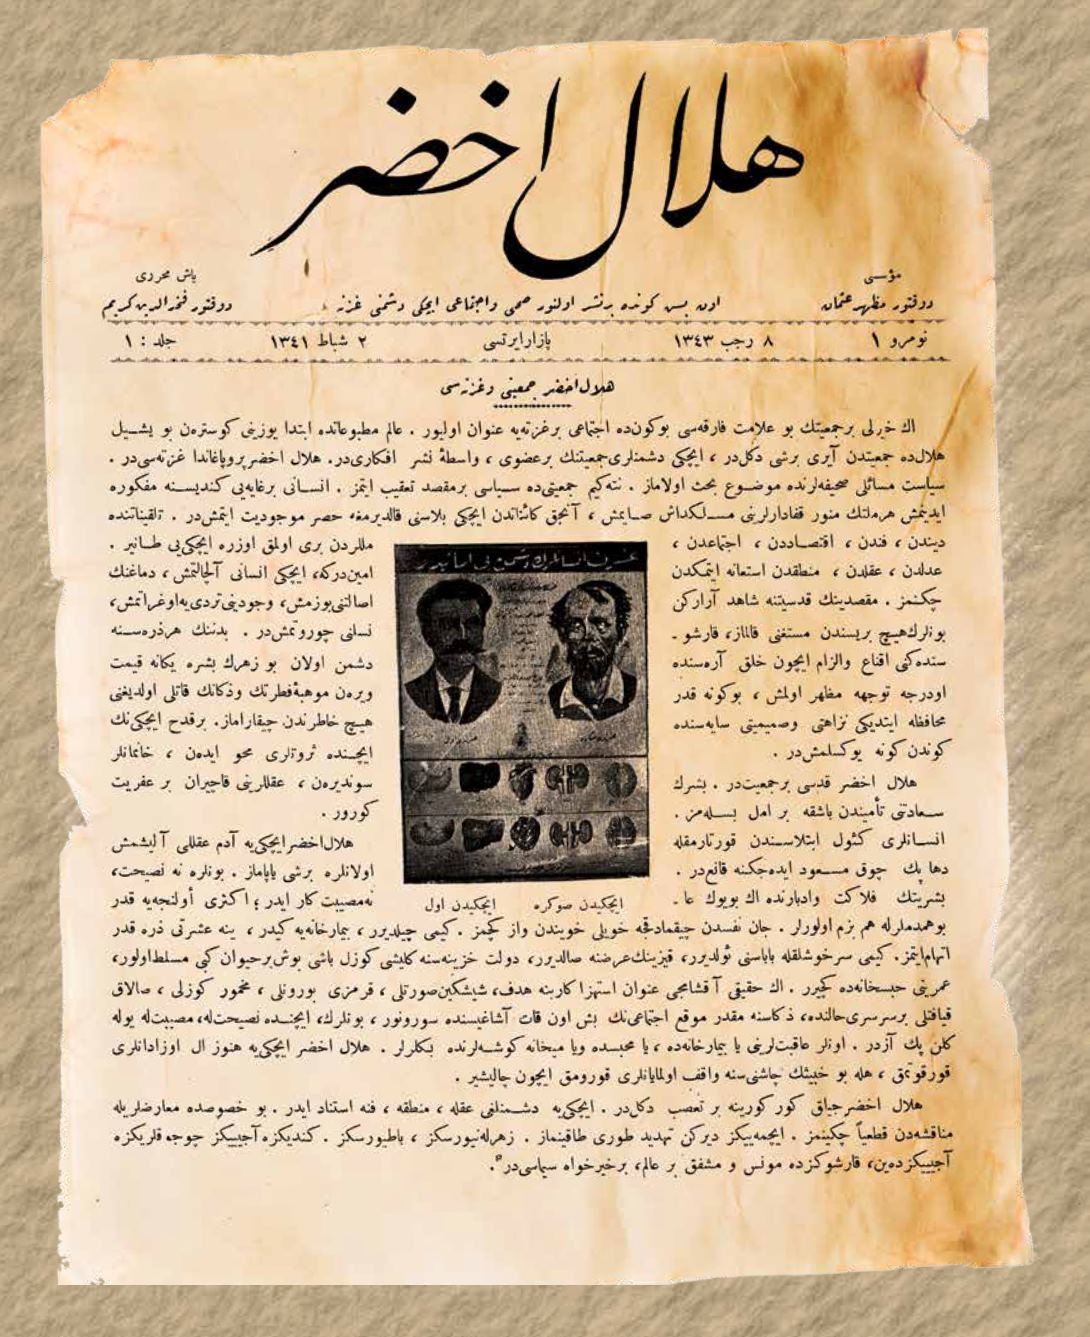 هلال اخضر
مؤسسی
دوقتور مظهر عثمان
اون بش كونده بر نشر اولنور صحی واجتماعی ایچكی دشمنی غزته
باش محرری
دوقتور فخرالدین كریم
نومرو ١
٨ رجب ١٣٤٣
پازارایرتسی
٢ شباط ١٣٤١
جلد : ١
هلال اخضر جمعیتی وغزته سی
اك خیرلی برجمعیتك بو علامت فارقه‌سی بوكون‌ده اجتماعی برغزته‌یه عنوان اولیور . عالم مطبوعاتده ابتدا یوزینی كوسترەن بو یشیل
هلال‌ده جمعیتدن آیری برشی دكل‌در ، ایچكی دشمنلری‌جمعیتنك برعضوی ، واسطهٔ نشر افكاری‌در. هلال اخضر پروپاغاندا غزته‌سی‌در .
سیاست مسائلی صحیفه‌لرنده موضوع بحث اولاماز . نته‌كیم جمعیتی‌ده سیاسی برمقصد تعقیب ایتمز . انسانی برغایه‌یی كندیسنه مفكوره
ایدینمش هرملتك منور قفادارلرینی مسلكداش صایمش ، آنجق كائناتدن ایچكی بلاسنی قالدیرمغه حصر موجودیت ایتمش‌در . تلقیناتنده
دیندن ، فندن ، اقتصاددن ، اجتماعدن ،
عدلدن ، عقلدن ، منطقدن استعانه ایتمكدن
چكنمز . مقصدینك قدسیتنه شاهد آراركن
بونلرك‌هیچ بریسندن مستغنی قالماز، قارشو ـ
سنده‌كی اقناع والزام ایچون خلق آره‌سنده
اودرجه توجهه مظهر اولمش ، بوكونه قدر
محافظه ایتدیكی نزاهتی وصمیمیتی سایه‌سنده
كوندن كونه یوكسلمش‌در .
هلال اخضر قدسی برجمعیت‌در . بشرك
سعادتنی تأمیندن باشقه بر امل بسله‌مز .
انسانلری كئول ابتلاسندن قورتارمقله
دها پك چوق مسعود ایده‌جكنه قانع‌در .
بشریتك فلاكت وادبارنده اك بویوك عا ـ
مللردن بری اولمق اوزره ایچكی‌یی طانیر .
امین‌دركه، ایچكی انسانی آلچالتمش ، دماغنك
اصالتنی‌بوزمش، وجودینی‌تردی‌یه‌اوغراتمش،
نسلنی چوروتمش‌در . بدننك هرذره‌سنه
دشمن اولان بو زهرك بشره یكانه قیمت
ویرەن موهبهٔ‌فطرتك وذكانك قاتلی اولدیغنی
هیچ خاطرندن چیقاراماز. برقدح ایچكی‌نك
ایچنده ثروتلری محو ایدەن ، خانمانلر
سوندیرەن ، عقللرینی قاچیران بر عفریت
كورور .
هلال‌اخضر ایچكی‌یه آدم عقللی آلیشمش
اولانلره برشی یاپاماز . بونلره نه نصیحت،
نه‌مصیبت كار ایدر ؛ اكثری أولنجه‌یه قدر
ایچكیدن صوكره
ایچكیدن اول
بوهمدملرله هم بزم اولورلر . جان نفسدن چیقمادقجه خویلی خویندن واز كچمز . كیمی چیلدیرر ، بیمارخانه‌یه كیدر ، ینه عشرتی ذره قدر
اتهام‌ایتمز. كیمی سرخوشلقله باباسنی ئولدیرر، قیزینك‌عرضنه صالدیرر، دولت خزینه‌سنه كلیشی كوزل باشی بوش‌برحیوان كبی مسلط‌اولور،
عمرینی حبسخانه‌ده كچیرر . اك حقیقی آقشامجی عنوان استهزا كارینه هدف، شیشكین‌صورتلی ، قرمزی بورونلی ، مخمور كوزلی ، صالاق
قیافتلی برسرسری‌حالنده، ذكاسنه مقدر موقع اجتماعی‌نك بش اون قات آشاغیسنده سورونور ، بونلرك، ایچنده نصیحت‌له، مصیبت‌له یوله
كلن پك آزدر . اونلر عاقبت‌لرینی یا بیمارخانه‌ده ، یا محبسده ویا میخانه كوشه‌لرنده بكلرلر . هلال اخضر ایچكی‌یه هنوز ال اوزادانلری
قورقوتمق ، هله بو خبیثك چاشنی‌سنه واقف اولمایانلری قورومق ایچون چالیشیر .
هلال اخضرجیلق كور كورینه بر تعصب دكل‌در . ایچكی‌یه دشمنلغی عقله ، منطقه ، فنه استناد ایدر . بو خصوصده معارضلریله
مناقشه‌دن قطعیاً چكینمز . ایچمه‌ییكز دیركن تهدید طوری طاقینماز . زهرله‌نیورسكز ، باطیورسكز . كندیكزه آجییكز چوجقلریكزه
آجییكز دەین، قارشوكزده مونس و مشفق بر عالم، برخیرخواه سیماسی‌در.